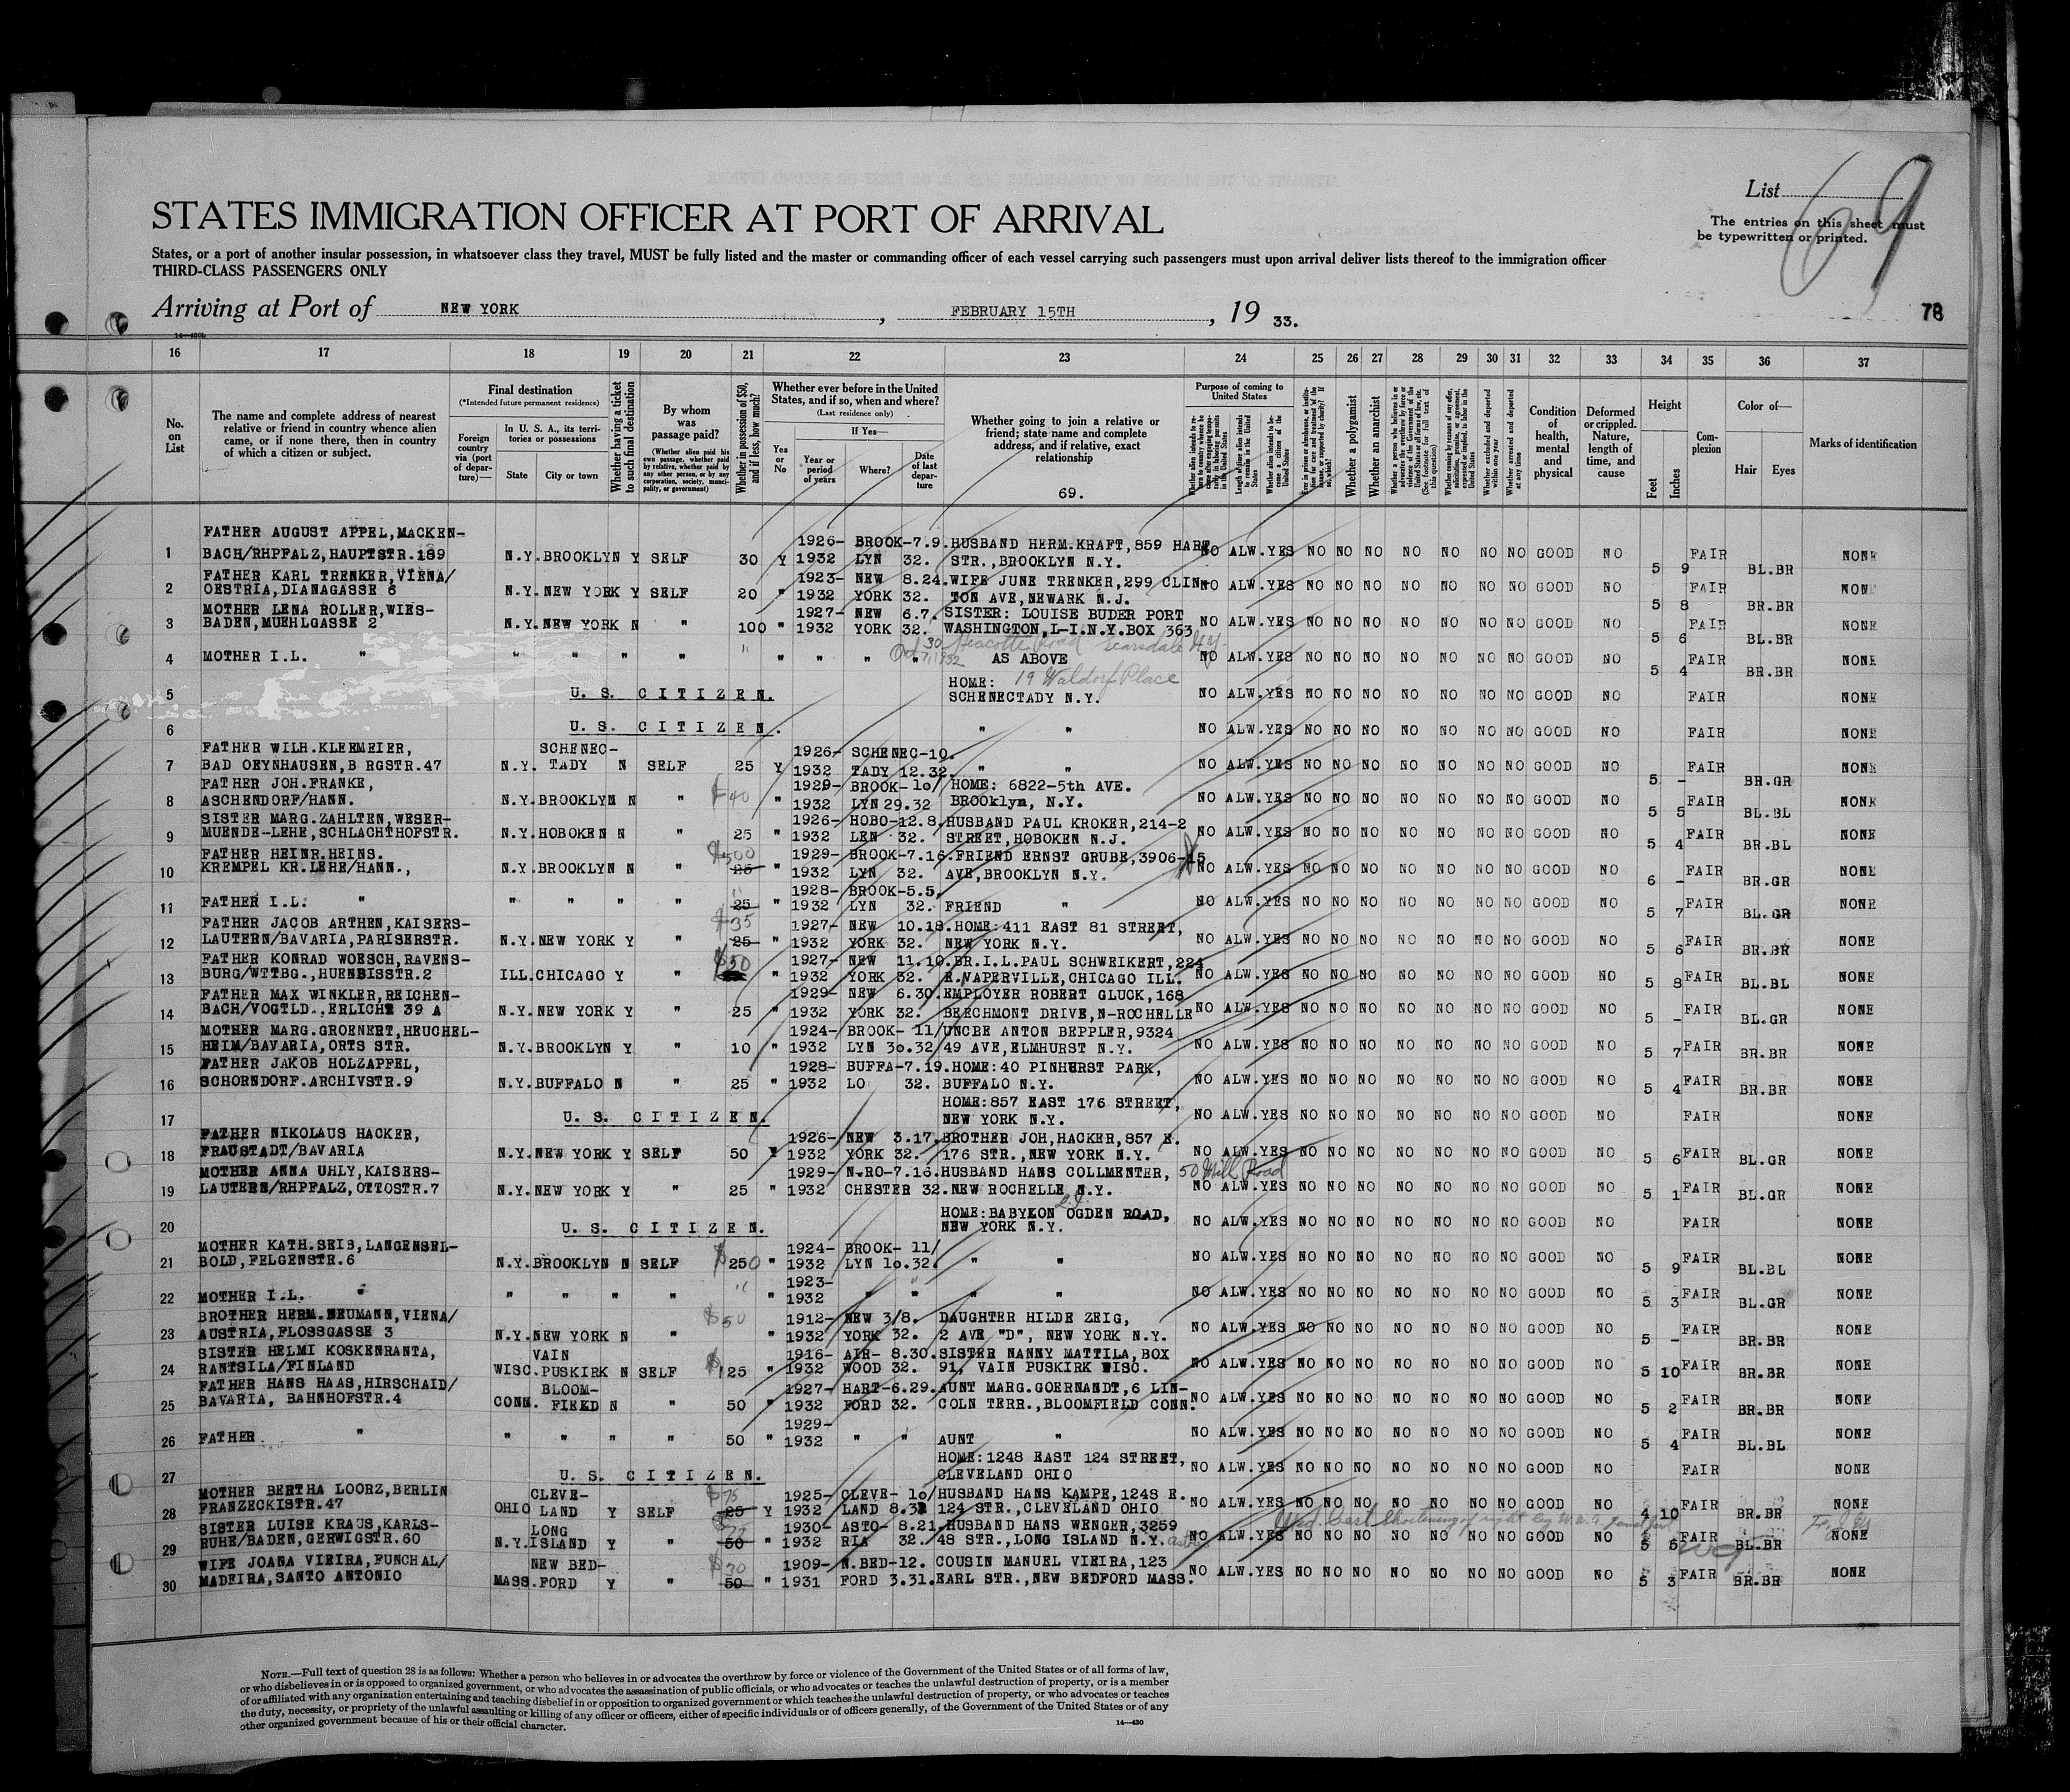 List 69
The entries on this sheet must
be typewritten or printed.
STATES IMMIGRATION OFFICER AT PORT OF ARRIVAL
States, or a port of another insular possession, in whatsoever class they travel, MUST be fully listed and the master or commanding officer of each vessel carrying such passengers must upon arrival deliver lists thereof to the immigration officer
THIRD-CLASS PASSENGERS ONLY
Arriving at Port of NEW YORK, FEBRUARY 15TH, 19 33.
78
16 17 18 19 20 21 22 23 24 25 26 27 28 29 30 31 32 33 34 35 36 37
No. on List
The name and complete address of nearest
relative or friend in country whence alien
came, or if none there, then in country
of which a citizen or subject.
Final destination
(*Intended future permanent residence)
Foreign country via (port of departure)—
In U. S. A., its territories or possessions
State City or town
Whether having a ticket to such final destination
By whom was passage paid?
(Whether alien paid his own passage, whether paid by relative, whether paid by any other person, or by any corporation, society, municipality, or government)
Whether in possession of $50, and if less, how much?
Whether ever before in the United States, and if so, when and where?
(Last residence only)
Yes or No
If Yes—
Year or period of years
Where?
Date of last departure
Whether going to join a relative or
friend; state name and complete
address, and if relative, exact
relationship
69.
Purpose of coming to United States
Whether a polygamist
Whether an anarchist
Condition of health, mental and physical
Deformed or crippled. Nature, length of time, and cause
Height
Feet Inches
Complexion
Color of—
Hair Eyes
Marks of identification
1 FATHER AUGUST APPEL, MACKEN-
BACH/RHPFALZ, HAUPTSTR.189 N.Y. BROOKLYN Y SELF 30 Y 1926-1932 BROOKLYN 7.9.32. HUSBAND HERM.KRAFT, 859 HART
STR., BROOKLYN N.Y. NO ALW. YES NO NO NO NO NO NO NO GOOD NO 5 9 FAIR BL.BR NONE
2 FATHER KARL TRENKER, VIENA/
OESTRIA, DIANAGASSE 6 N.Y. NEW YORK Y SELF 20 " 1923-1932 NEW YORK 8.24.32. WIFE JUNE TRENKER, 299 CLIN-
TON AVE, NEWARK N.J. NO ALW. YES NO NO NO NO NO NO NO GOOD NO 5 8 FAIR BR.BR NONE
3 MOTHER LENA ROLLER, WIES-
BADEN, MUEHLGASSE 2 N.Y. NEW YORK N " 100 " 1927-1932 NEW YORK 6.7.32. SISTER: LOUISE BUDER PORT
WASHINGTON, L-I.N.Y. BOX 363 NO ALW. YES NO NO NO NO NO NO NO GOOD NO 5 6 FAIR BL.BR NONE
30 Heacotte Road Scarsdale N.Y.
4 MOTHER I.L. " " " " " " " " " " AS ABOVE NO ALW. YES NO NO NO NO NO NO NO GOOD NO 5 4 FAIR BR.BR NONE
5 U. S. CITIZEN. HOME: 19 Waldorf Place
SCHENECTADY N.Y. NO ALW. YES NO NO NO NO NO NO NO GOOD NO FAIR NONE
6 U. S. CITIZEN. " " NO ALW. YES NO NO NO NO NO NO NO GOOD NO FAIR NONE
7 FATHER WILH.KLEEMEIER,
BAD OEYNHAUSEN, B RGSTR.47 N.Y. SCHENEC-TADY N SELF 25 Y 1926-1932 SCHENEC-TADY 10.12.32. " " NO ALW. YES NO NO NO NO NO NO NO GOOD NO 5 - FAIR BR.GR NONE
8 FATHER JOH.FRANKE,
ASCHENDORF/HANN. N.Y. BROOKLYN N " $40 " 1929-1932 BROOK-LYN 10/29.32 HOME: 6822-5th AVE.
BROOklyn, N.Y. NO ALW. YES NO NO NO NO NO NO NO GOOD NO 5 5 FAIR BL.BL NONE
9 SISTER MARG.ZAHLTEN, WESER-
MUENDE-LEHE, SCHLACHTHOFSTR. N.Y. HOBOKEN N " 25 " 1926-1932 HOBO-LEN 12.8.32. HUSBAND PAUL KROKER, 214-2
STREET, HOBOKEN N.J. NO ALW. YES NO NO NO NO NO NO NO GOOD NO 5 4 FAIR BR.BL NONE
10 FATHER HEINR.HEINS.
KREMPEL KR.LEHE/HANN., N.Y. BROOKLYN N " $500 25 " 1929-1932 BROOK-LYN 7.16.32. FRIEND ERNST GRUBE, 3906-15
AVE, BROOKLYN N.Y. NO ALW. YES NO NO NO NO NO NO NO GOOD NO 6 - FAIR BR.GR NONE
11 FATHER I.L. " " " " " 25 1928-1932 BROOK-LYN 5.5.32. FRIEND " NO ALW. YES NO NO NO NO NO NO NO GOOD NO 5 7 FAIR BL.GR NONE
12 FATHER JACOB ARTHEN, KAISERS-
LAUTERN/BAVARIA, PARISERSTR. N.Y. NEW YORK Y " $35 25 " 1927-1932 NEW YORK 10.18.32. HOME: 411 EAST 81 STREET,
NEW YORK N.Y. NO ALW. YES NO NO NO NO NO NO NO GOOD NO 5 6 FAIR BR.BR NONE
13 FATHER KONRAD WOESCH, RAVENS-
BURG/WTTBG., HUENBISSTR.2 ILL. CHICAGO Y " $50 " 1927-1932 NEW YORK 11.10.32. BR.I.L.PAUL SCHWEIKERT, 224
E.NAPERVILLE, CHICAGO ILL. NO ALW. YES NO NO NO NO NO NO NO GOOD NO 5 8 FAIR BL.BL NONE
14 FATHER MAX WINKLER, REICHEN-
BACH/VOGTLD., ERLICHT 39 A N.Y. NEW YORK Y " 25 " 1929-1932 NEW YORK 6.30.32. EMPLOYER ROBERT GLUCK, 168
BEECHMONT DRIVE, N-ROCHELLE NO ALW. YES NO NO NO NO NO NO NO GOOD NO 5 - FAIR BL.GR NONE
15 MOTHER MARG.GROENERT, HEUCHEL-
HEIM/BAVARIA, ORTS STR. N.Y. BROOKLYN Y " 10 " 1924-1932 BROOK-LYN 11/30.32 UNCBE ANTON BEPPLER, 9324
49 AVE, ELMHURST N.Y. NO ALW. YES NO NO NO NO NO NO NO GOOD NO 5 7 FAIR BR.BR NONE
16 FATHER JAKOB HOLZAPFEL,
SCHORNDORF.ARCHIVSTR.9 N.Y. BUFFALO N " 25 " 1928-1932 BUFFA-LO 7.19.32. HOME: 40 PINHURST PARK,
BUFFALO N.Y. NO ALW. YES NO NO NO NO NO NO NO GOOD NO 5 4 FAIR BR.BR NONE
17 U. S. CITIZEN. HOME: 857 EAST 176 STREET,
NEW YORK N.Y. NO ALW. YES NO NO NO NO NO NO NO GOOD NO FAIR NONE
18 FATHER NIKOLAUS HACKER,
FRAUSTADT/BAVARIA N.Y. NEW YORK Y SELF 50 Y 1926-1932 NEW YORK 3.17.32. BROTHER JOH, HACKER, 857 E.
176 STR., NEW YORK N.Y. NO ALW. YES NO NO NO NO NO NO NO GOOD NO 5 6 FAIR BL.GR NONE
19 MOTHER ANNA UHLY, KAISERS-
LAUTERN/RHPFALZ, OTTOSTR.7 N.Y. NEW YORK Y " 25 " 1929-1932 N.RO-CHESTER 7.16.32. HUSBAND HANS COLLMENTER, 50 Mill Road
NEW ROCHELLE N.Y. NO ALW. YES NO NO NO NO NO NO NO GOOD NO 5 1 FAIR BL.GR NONE
20 U. S. CITIZEN. HOME: BABYKON OGDEN ROAD,
NEW YORK N.Y. NO ALW. YES NO NO NO NO NO NO NO GOOD NO FAIR NONE
21 MOTHER KATH.SEIB, LANGENSEL-
BOLD, FELGENSTR.6 N.Y. BROOKLYN N SELF $250 " 1924-1932 BROOK-LYN 11/10.32. " " NO ALW. YES NO NO NO NO NO NO NO GOOD NO 5 9 FAIR BL.BL NONE
22 MOTHER I.L. " " " " " " 1923-1932 " " " " NO ALW. YES NO NO NO NO NO NO NO GOOD NO 5 3 FAIR BL.GR NONE
23 BROTHER HERM.NEUMANN, VIENA/
AUSTRIA, FLOSSGASSE 3 N.Y. NEW YORK N " $50 " 1912-1932 NEW YORK 3/8.32. DAUGHTER HILDE ZEIG,
2 AVE "D", NEW YORK N.Y. NO ALW. YES NO NO NO NO NO NO NO GOOD NO 5 - FAIR BR.BR NONE
24 SISTER HELMI KOSKENRANTA,
RANTSILA/FINLAND WISC. VAIN PUSKIRK N SELF $125 " 1916-1932 AIR-WOOD 8.30.32. SISTER NANNY MATTILA, BOX
91, VAIN PUSKIRK WISC. NO ALW. YES NO NO NO NO NO NO NO GOOD NO 5 10 FAIR BR.BR NONE
25 FATHER HANS HAAS, HIRSCHAID/
BAVARIA, BAHNHOFSTR.4 CONN. BLOOM-FIEKD N " 50 " 1927-1932 HART-FORD 6.29.32. AUNT MARG.GOERNANDT, 6 LIN-
COLN TERR., BLOOMFIELD CONN. NO ALW. YES NO NO NO NO NO NO NO GOOD NO 5 2 FAIR BR.BR NONE
26 FATHER " " " " " 50 " 1929-1932 " " AUNT " NO ALW. YES NO NO NO NO NO NO NO GOOD NO 5 4 FAIR BL.BL NONE
27 U. S. CITIZEN. HOME: 1248 EAST 124 STREET,
CLEVELAND OHIO NO ALW. YES NO NO NO NO NO NO NO GOOD NO FAIR NONE
28 MOTHER BERTHA LOORZ, BERLIN
FRANZECKISTR.47 OHIO CLEVE-LAND Y SELF $75 25 Y 1925-1932 CLEVE-LAND 10/8.32 HUSBAND HANS KAMPE, 1248 E.
124 STR., CLEVELAND OHIO NO ALW. YES NO NO NO NO NO NO NO GOOD NO 4 10 FAIR BR.BR NONE
Med. Cert shortening of right leg
29 SISTER LUISE KRAUS, KARLS-
RUHE/BADEN, GERWIGSTR.60 N.Y. LONG ISLAND Y " 50 " 1930-1932 ASTO-RIA 8.21.32. HUSBAND HANS WENGER, 3259
48 STR., LONG ISLAND N.Y. NO ALW. YES NO NO NO NO NO NO NO GOOD NO 5 5 FAIR BL.BR NONE
30 WIFE JOANA VIEIRA, FUNCHAL/
MADEIRA, SANTO ANTONIO MASS. NEW BED-FORD Y " $30 50 " 1909-1931 N.BED-FORD 12.3.31. COUSIN MANUEL VIEIRA, 123
EARL STR., NEW BEDFORD MASS. NO ALW. YES NO NO NO NO NO NO NO GOOD NO 5 3 FAIR BR.BR NONE
NOTE.—Full text of question 28 is as follows: Whether a person who believes in or advocates the overthrow by force or violence of the Government of the United States or of all forms of law,
or who disbelieves in or is opposed to organized government, or who advocates the assassination of public officials, or who advocates or teaches the unlawful destruction of property, or is a member
of or affiliated with any organization entertaining and teaching disbelief in or opposition to organized government or which teaches the unlawful destruction of property, or who advocates or teaches
the duty, necessity, or propriety of the unlawful assaulting or killing of any officer or officers, either of specific individuals or of officers generally, of the Government of the United States or of any
other organized government because of his or their official character.
14—430